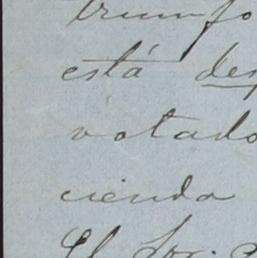 triunfo
está des
votado
ciendo
El Sor.